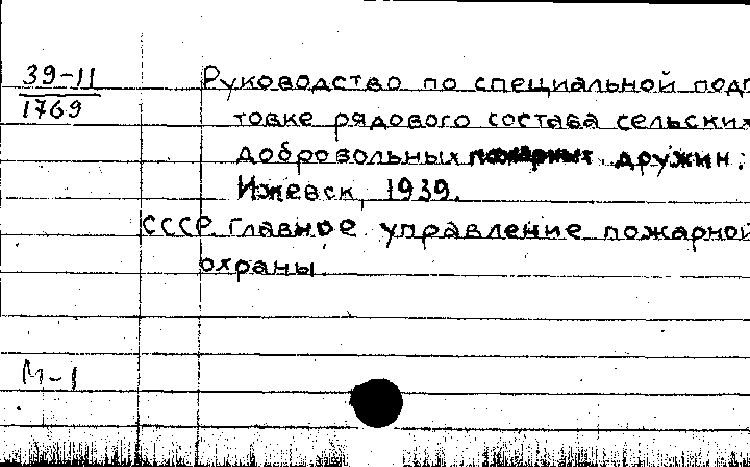 39-11
1769
Руководство по специальной подг
товке рядового состава сельских
добровольных пожарных дружин:
Ижевск, 1939.
СССР. Главное управление пожарной
охраны.
М-1